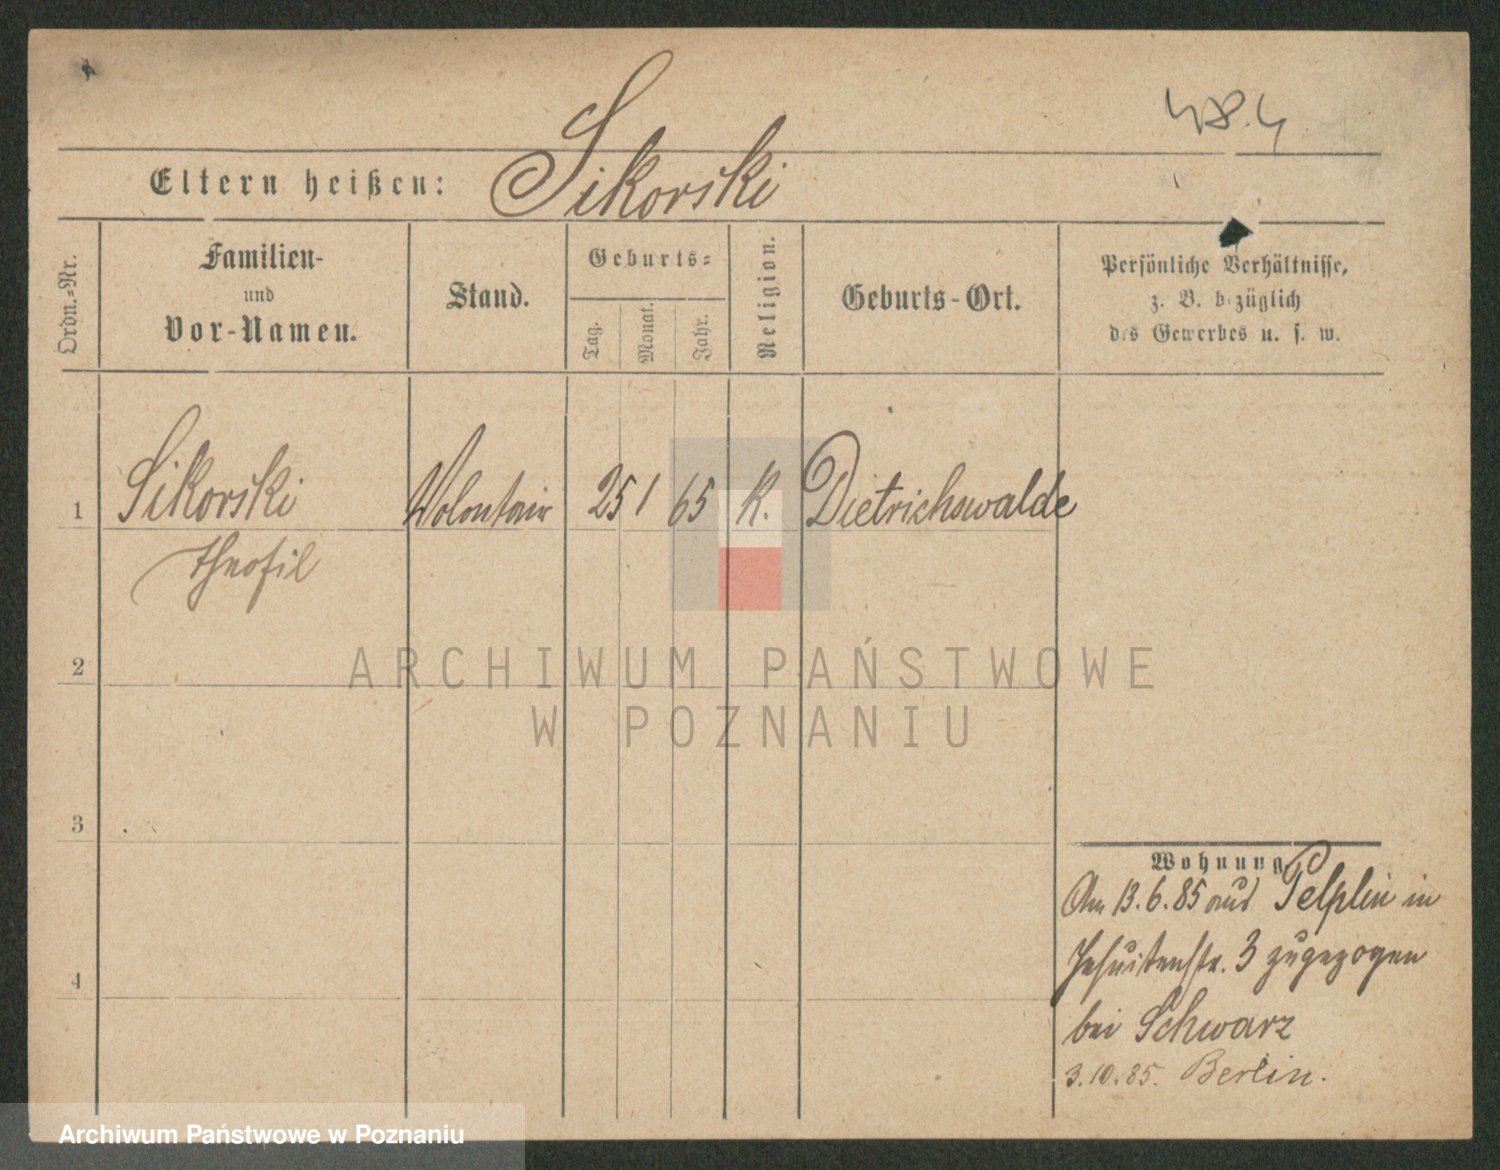 Eltern heißen: Sikorski
Ordn.-Nr.
Familien-
und
Vor-Namen.
Stand.
Geburts-
Tag.
Monat.
Jahr.
Religion.
Geburts-Ort.
Persönliche Verhältnisse,
z. B. bezüglich
des Gewerbes u. s. w.
1 Sikorski Volontair 25 1 65 K. Dietrichswalde
Theofil
2
3
4
ARCHIWUM PAŃSTWOWE
W POZNANIU
Wohnung
Am 13.6.85 aus Pelplin in
Jesuitenstr. 3 zugezogen
bei Schwarz
3.10.85. Berlin.
Archiwum Państwowe w Poznaniu